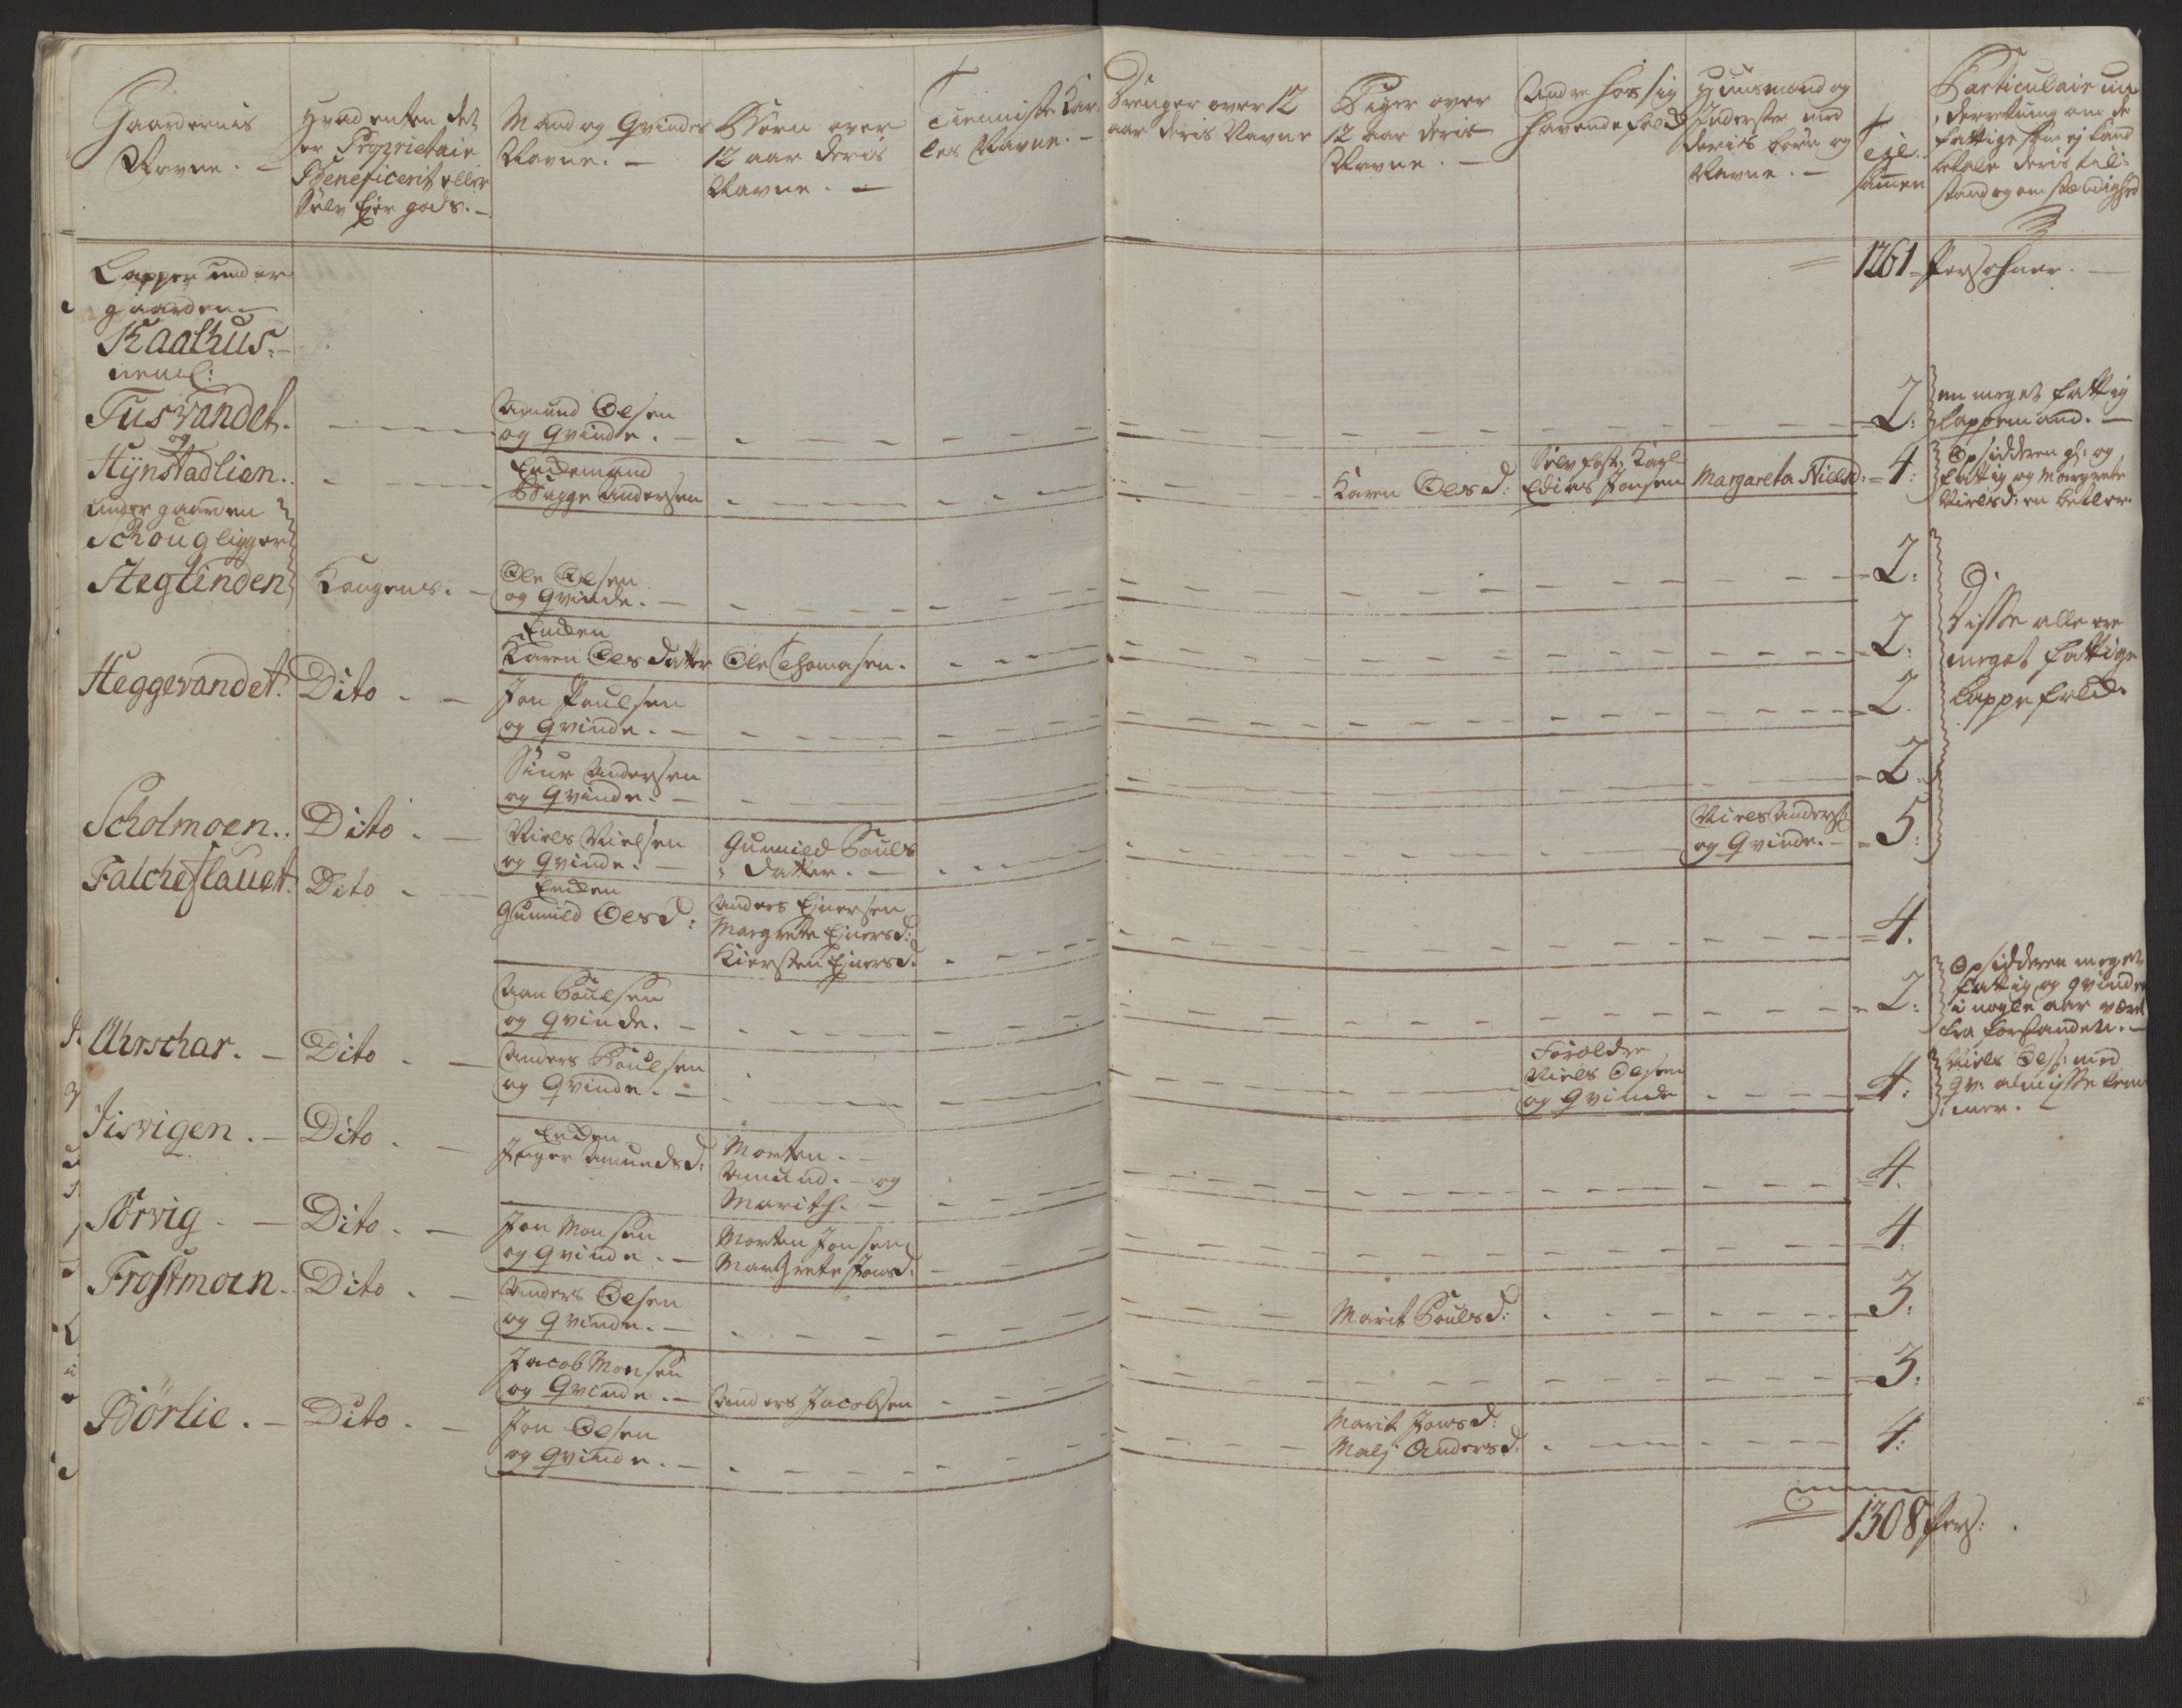 Gaardernis
Navne. -
Hvad enten det
er Proprietair
Beneficerit eller
Selv Ejer gods. -
Mand og Qvindes
Navne. -
Børn over
12 aar deris
Navne. -
Tienniste Kar-
les Navne. -
Drenger over 12
aar deris Navne
Piger over
12 aar deris
Navne. -
Andre hos sig
havende folck
Huusmænd og
Inderster med
deris børn og
Navne. -
Til-
sammen
Particulair un-
derretning om de
fattige som ej kand
betale deris til-
stand og omstændighed
1261 Persohner.
Lapper under
gaarden
Kaalhus.-
neml:
Tusvandet.
Amund Olsen
og Qvinde. -
2:
en meget fattig
Lappemand. -
og
Hynstadlien.
Enckemand
Sugge Andersen
Karen Olsd:
Selv fost: Kagl
Edies Jonsen
Margareta Nielsd:
4:
Opsidderen gl: og
fattig og Margrete
Nielsd: en betler.
under gaarden
Schoug ligger
Steglinden
Kongens. -
Ole Olsen
og Qvinde. -
2:
Disse alle ere
meget fattige
Lappe folck.
Encken
Karen Olsdatter
Ole Thomasen.
2:
Heggevandet.
Dito - -
Jon Poulsen
og Qvinde. -
2
Siur Andersen
og Qvinde. -
2
Scholmoen.
Dito. -
Niels Nielsen
og Qvinde. -
Gunnild Pouls
datter. -
Niels Anders:
og Qvinde. -
5:
Falcheflauet.
Dito -
Encken
Gunnild Olsd:
Anders Ejnersen
Margrete Ejnersd:
Kiersten Ejnersd.
4.
Aan Poulsen
og Qvinde. -
2:
Opsidderen meget
fattig og Qvinden
i nogle aar været
fra forstanden. -
Uhrschar. -
Dito - -
Anders Poulsen
og Qvinde. -
Forældre
Niels Olsen
og Qvinde
4:
Niels Ols: med
Qv: almisse lem-
mer. -
Jisvigen. -
Dito. -
Encken
Inger Amundsd:
Morten. -
Amund. - og
Marith. -
4.
Sørvig - -
Dito. -
Jon Monsen
og Qvinde. -
Morten Jonsen
Margrete Jonsd:
4.
Frostmoen.
Dito. -
Anders Olsen
og Qvinde. -
Marit Poulsd:
3.
Jacob Monsen
og Qvinde. -
Anders Jacobsen
3.
Børlie. -
Dito. -
Jon Olsen
og Qvinde. -
Marit Jonsd:
Malj Andersd.
4:
1308 Pers: